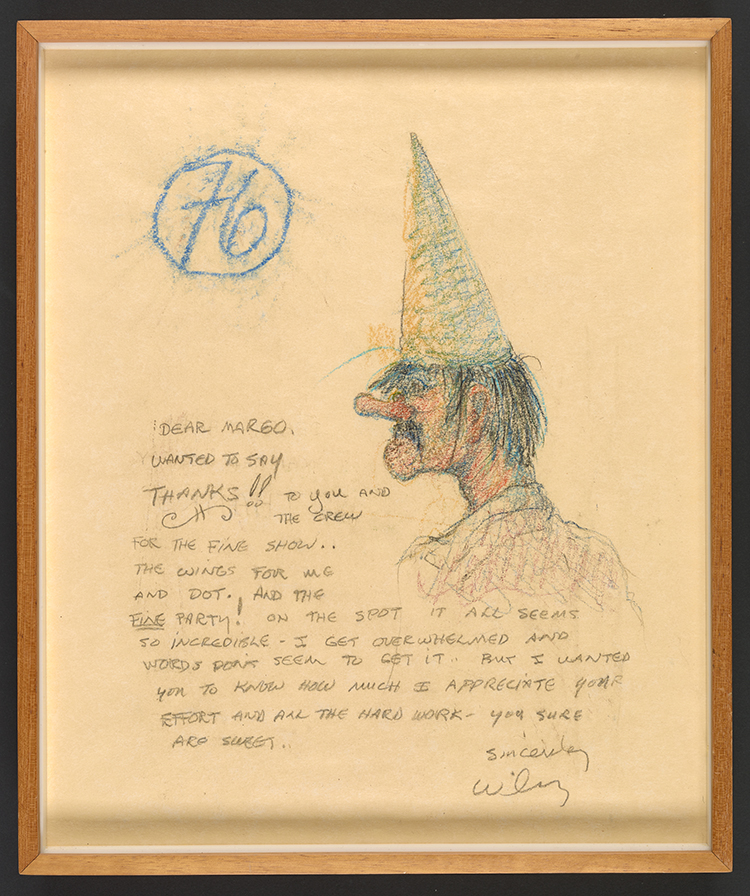 76
DEAR MARGO,
WANTED TO SAY
THANKS!! TO YOU AND
THE CREW
FOR THE FINE SHOW..
THE WINGS FOR ME
AND DOT. AND THE
FINE PARTY! ON THE SPOT IT ALL SEEMS
SO INCREDIBLE - I GET OVERWHELMED AND
WORDS DON'T SEEM TO GET IT.. BUT I WANTED
YOU TO KNOW HOW MUCH I APPRECIATE YOUR
EFFORT AND ALL THE HARD WORK - YOU SURE
ARE SWEET..
Sincerely
Wiley